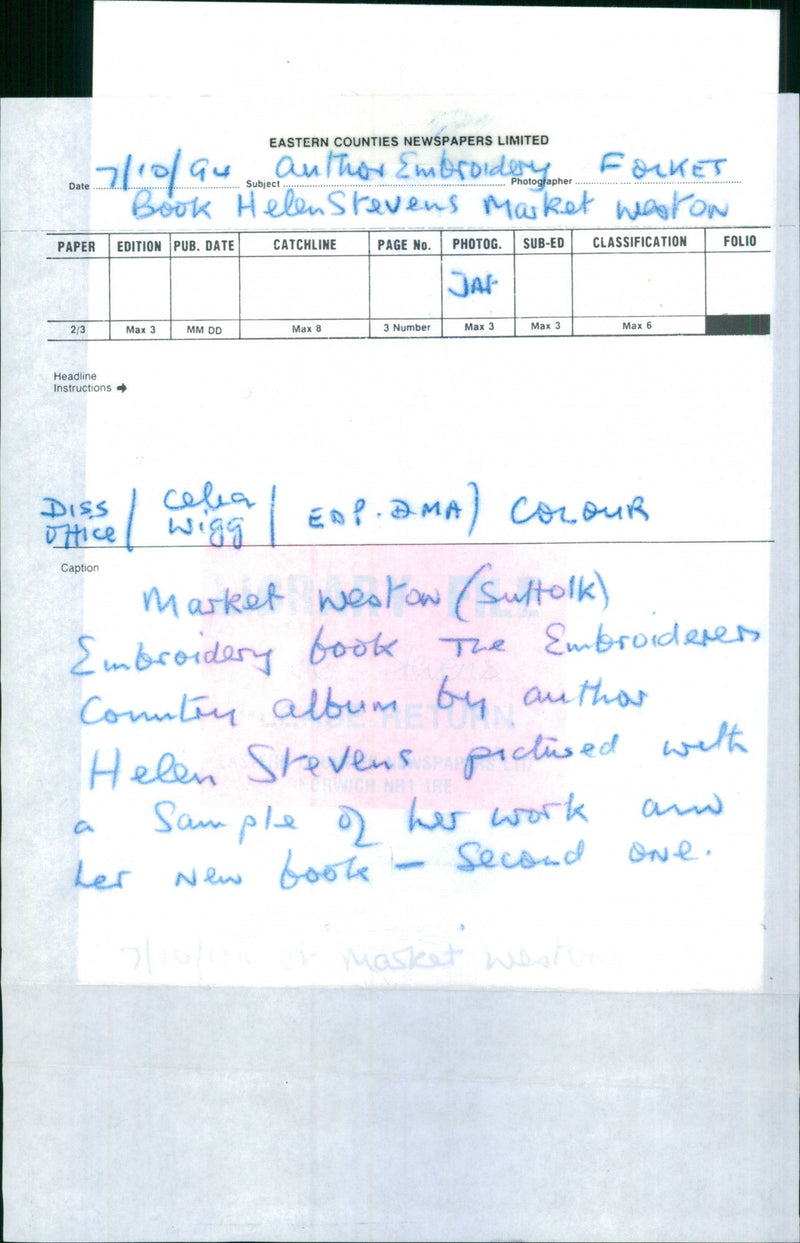 EASTERN COUNTIES NEWSPAPERS LIMITED
Date 7/10/94 Subject Author Embroidery Photographer FOLKET
Book Helen Stevens Market Weston
PAPER EDITION PUB. DATE CATCHLINE PAGE No. PHOTOG. SUB-ED CLASSIFICATION FOLIO
JAF
2/3 Max 3 MM DD Max 8 3 Number Max 3 Max 3 Max 6
Headline
Instructions
DISS Office / Celia Wigg / EDP. DMA) COLOUR
Caption
Market Weston (Suffolk)
Embroidery book The Embroiderers
Country album by author
Helen Stevens pictured with
a Sample of her work and
her new book — Second one.
LIBRARY FILE
PLEASE RETURN
EASTERN COUNTIES NEWSPAPERS LTD
NORWICH NR1 1RE
7/10/94 Market Weston